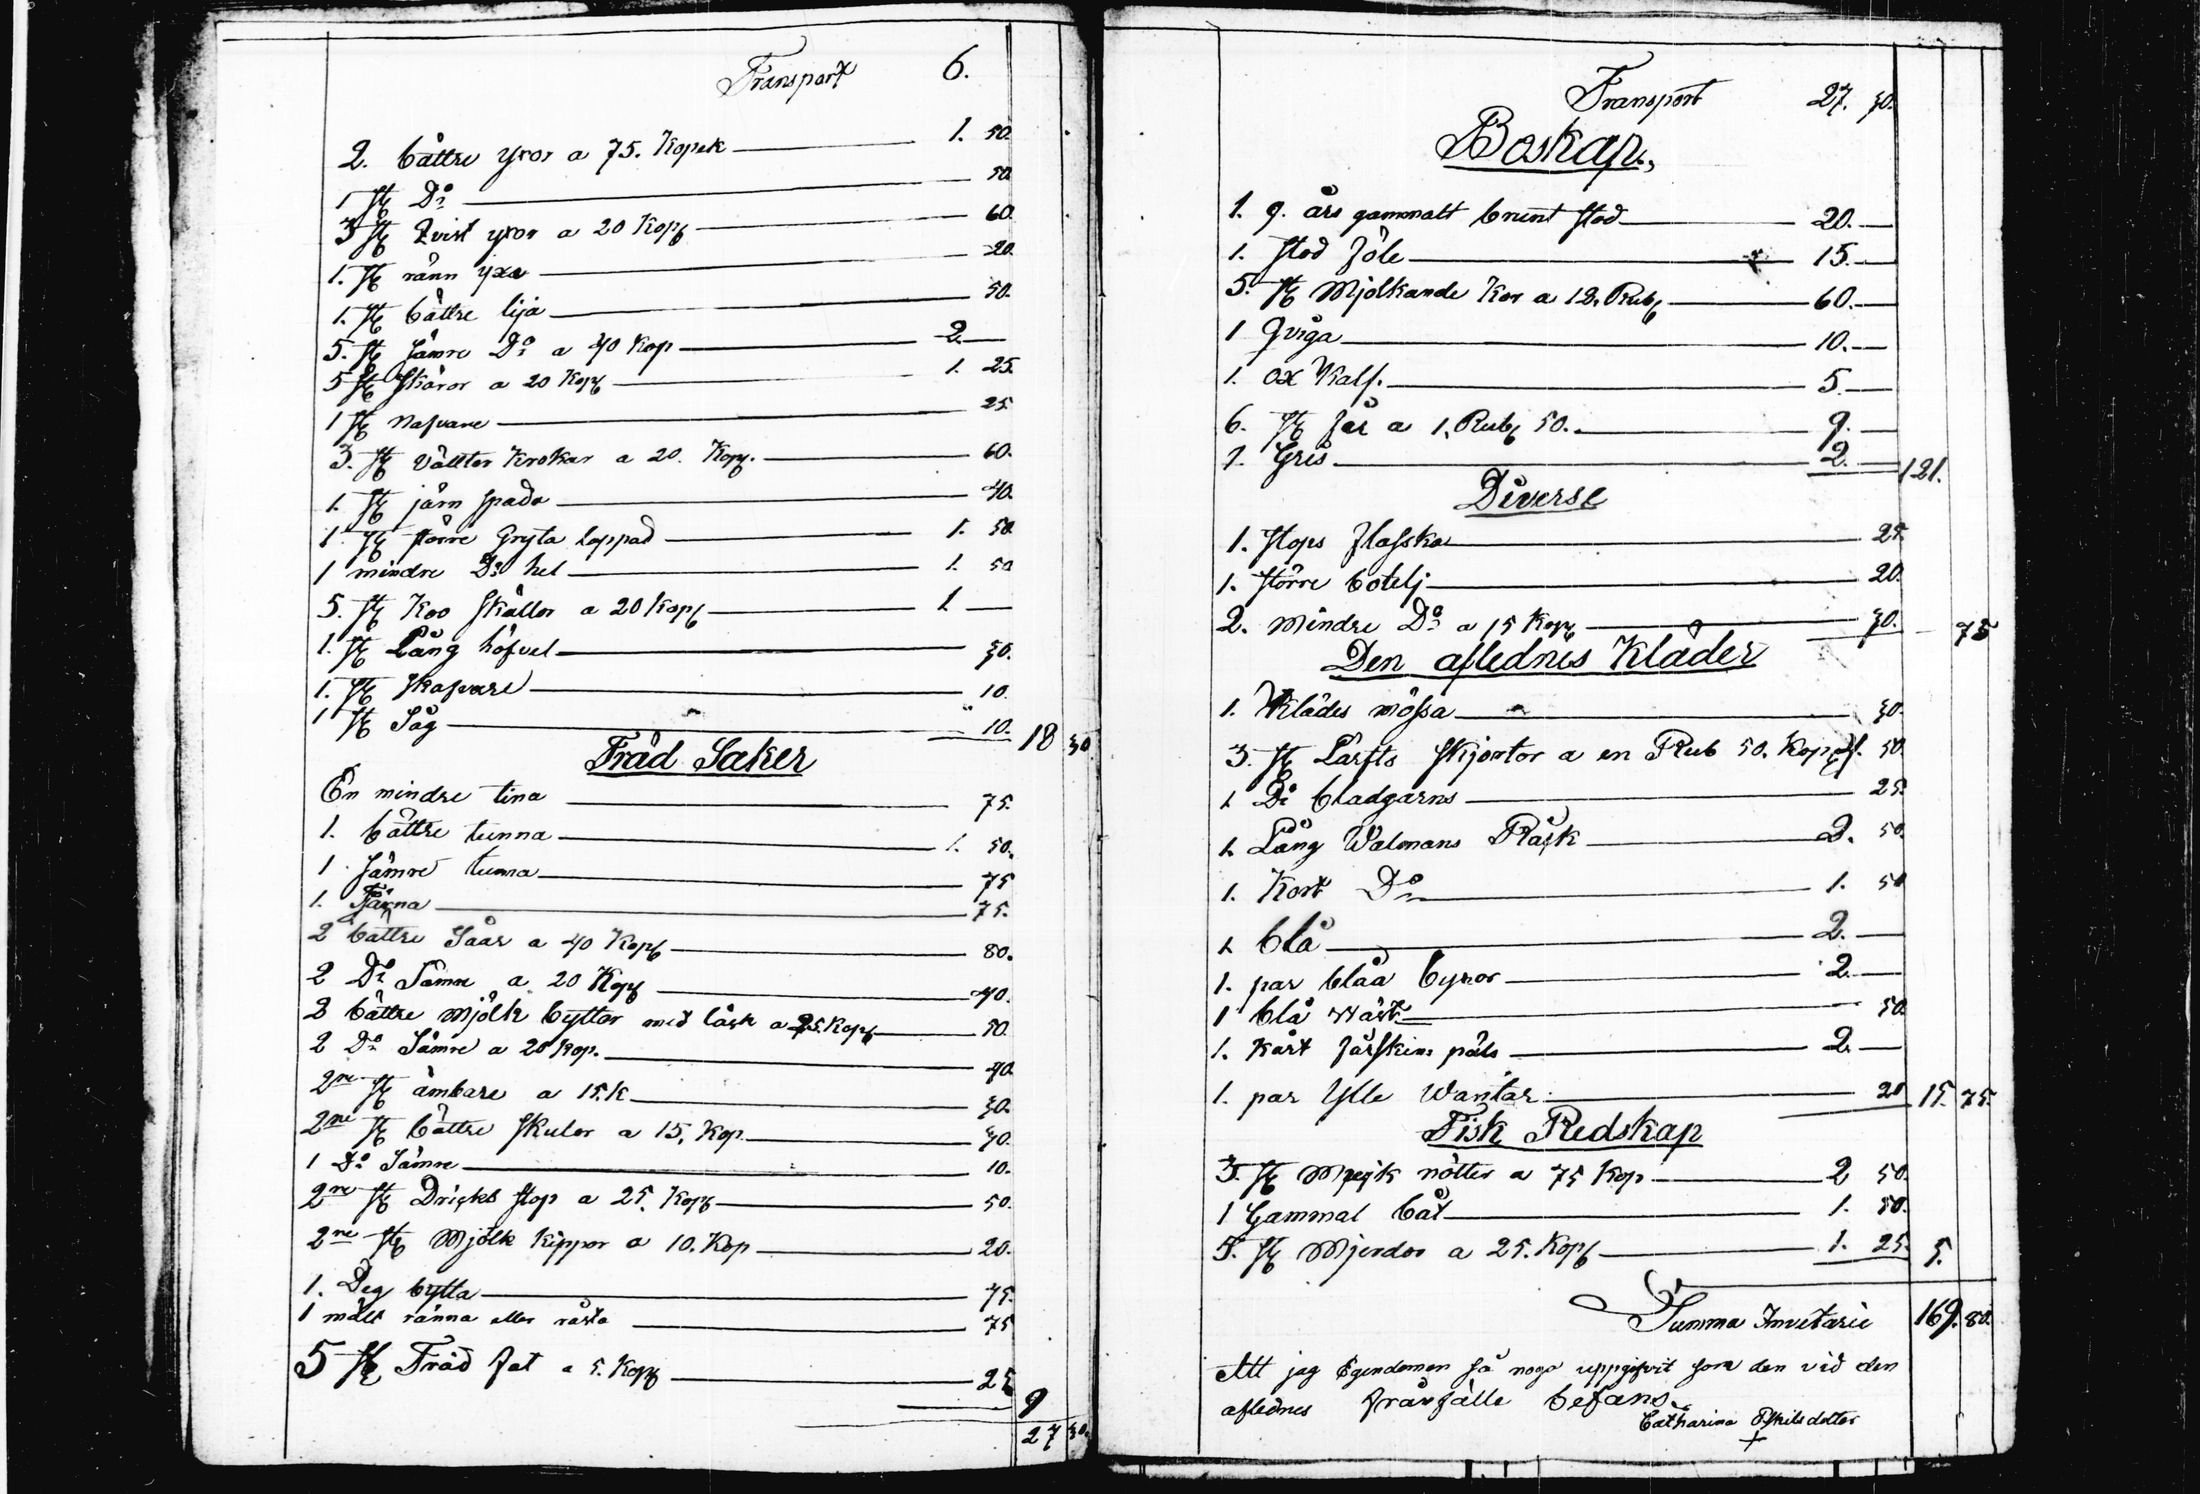 Transport 6.
2. bättre yxor a 75. Kopek 1. 50.
1 st D:o 50.
3 st Qvist yxor a 20 Kop 60.
1. st ränn yxa 20.
1. st bättre lija 50.
5. st sämre D:o a 40 Kop 2
5 st skäror a 20 Kop 1. 25.
1 st Nafvare 25
3. st Vällter Krokar a 20. Kop. 60.
1. st järn spada 40.
1 st större Gryta lappad 1. 50
1 mindre D:o hel 1. 50
5. st Koo skällor a 20 Kop 1
1. st Lång höfvel 30.
1. st skafvare 10.
1 st Såg 10. 18 30.
Träd Saker
En mindre tina 75.
1. bättre tunna 1. 50.
1 sämre tunna 75
1. Tärna 75.
2 bättre Såar a 40 Kop 80.
2 D:o Sämre a 20 Kop 40.
2 bättre Mjölk byttor med låck a 25. Kop 50.
2 D:o Sämre a 20 Kop. 40
2ne st ämbare a 15. K 30.
2ne st bättre skulor a 15. Kop 30
1 D:o Sämre 10.
2ne st Dricks stop a 25. Kop 50.
2ne st Mjölk kippor a 10. Kop 20.
1. Deg bytta 75.
1 mält ränna eller råsta 75
5 st Träd fat a 5. Kop 25 9
27 30.
Transport 27. 30.
Boskap.
1. 9. års gammalt brunt stod 20.
1. stod föle 15.
5. st Mjölkande Kor a 12. Rub 60.
1 Qviga 10.
1. ox Kalf. 5
6. st får a 1. Rub 50. 9.
1. Gris 2. 121.
Diverse
1. stops flasska 25
1. större botelj 20.
2. mindre D:o a 15 Kop 30. 75
Den aflednes Kläder
1. Klädes mössa 30
3. st Lärfts skjortor a en Rub 50. Kop 4. 50
1 D:o bladgarns 25.
1. Lång Walmans Råck 2. 50.
1. Kort D:o 1. 50
1 blå 2.
1. par blåa byxor 2.
1 blå wäst 50.
1. kårt fårskins päls 2
1. par Ylle Wantar 20 15. 75.
Fisk Redskap
3. st nötter a 75 Kop 2 50.
1 Gammal båt 1. 50.
5. st Mjerdor a 25. Kop 1. 25. 5.
Summa Invetarie 169. 80.
Att jag Egendomen så noga uppgifvit som den vid den
aflednes frånfälle befans.
Catharina Eskilsdotter
+